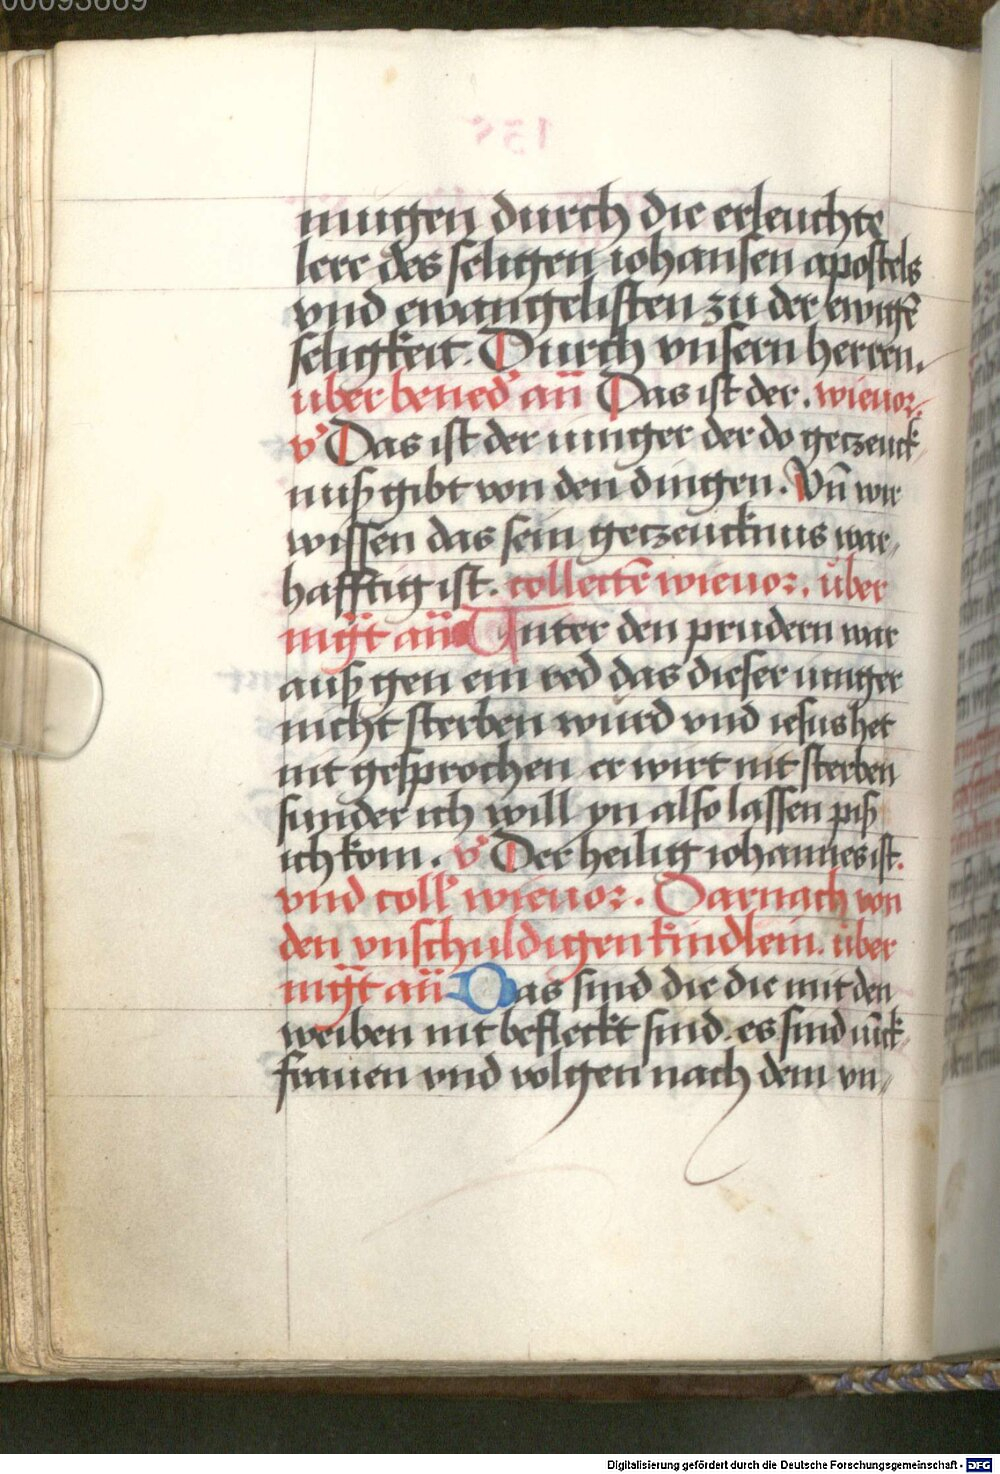 00093669
mugen durch die erleuchte
lere des seligen iohansen apostels
vnd ewangelisten zu der ewigē
seligkeit. Durch vnsern herren.
uber bened' an̄ Das ist der. wieuor.
v' Das ist der iunger der do geczeuck
nuß gibt von den dingen. Vn̄ wir
wissen das sein geczeucknus war,
hafftig ist. collectē wieuor. über
mg̈t an̄ Unter den prudern war
auß gen ein red das dieser iunger
nicht sterben wurd vnd iesus het
nit gesprochen er wirt nit sterben
sunder ich will yn also lassen piß
ich kom. v' Der heilig iohannes ist.
vnd coll' wieuor. Darnach von
den vnschuldigen kindlein. über
mg̈t an̄ Das sind die die mit den
weiben nit befleckt sind. es sind iūck
frauen vnd volgen nach dem vn,
Digitalisierung gefördert durch die Deutsche Forschungsgemeinschaft - DFG